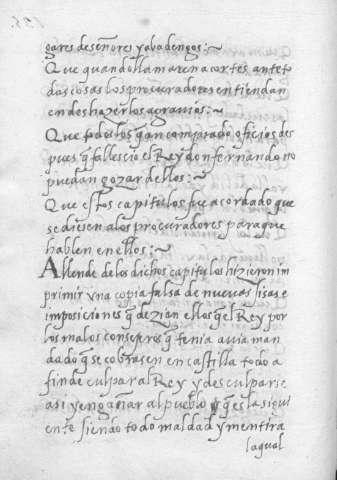 gares de señores y abadengos:~
Que quando llamaren a cortes antetodas cosas los procuradores entiendan
en deshazer los agravios:~
Que todos los q̃ an comprado oficios des
pues q̃ fallescio el Rey don fernando no
puedan gozar dellos:~
Que estos capitulos fue acordado que
se diesen a los procuradores para que
hablen en ellos:~
Allende de los dichos capitulos hizieron im
primir vna copia falsa de nuevas sisas e
imposiciones q̃ dezian ellos q̃ el Rey por
los malos consejeros q̃ tenia avia man
dado q̃ se cobrasen en castilla todo a
fin de culpar al Rey y desculparse
asi y engañar al pueblo q̃ es la sigui
ente siendo todo maldad y mentira
la qual